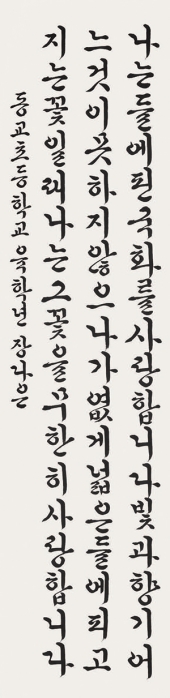 나는들에핀국화를사랑합니다빛과향기어
느것이못하지않으나가엾게넓은들에피고
지는꽃일래나는그꽃을무한히사랑합니다
동교초등학교 육학년 장나은